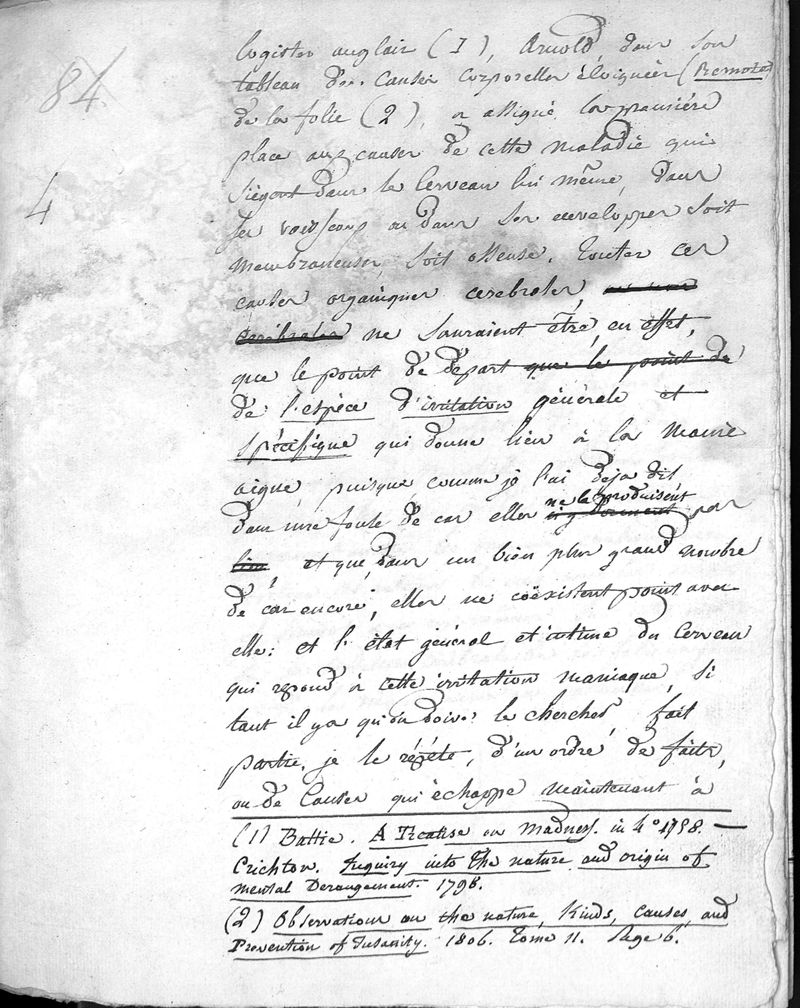 84.
4
logistes anglais (I), Arnold, dans son
tableau des causes corporelles éloignées (Remote)
de la folie (2), a assigné la premiére
place aux causes de cette maladie qui
siégent dans le cerveau lui même, dans
ses vaisseaux ou dans ses enveloppes soit
membraneuses, soit osseuse. Toutes ces
causes organiques cerebrales,
cerébrales ne sauraient être, en effet,
que le point de départ que le point de
de l'espèce d'irritation générale et
spécifique qui donne lieu à la manie
aigue, puisque, comme je l'ai deja dit
dans une foule de cas elles ne la produisent pas
lieu, et que, dans un bien plus grand nombre
de cas encore, elles ne coëxistent point avec
elle: et l'état général et intime du cerveau
qui répond à cette irritation maniaque, si
tant il y a qu'on doive le chercher, fait
partie, je le répéte, d'un ordre de faits,
ou de causes qui échappe maintenant à
(1) Battie. A Treatise on madness. in 4° 1758. —
Crichton. Inquiry into the nature and origin of
mental Derangement. 1798.
(2) Observations on the nature, Kinds, causes, and
Prevention of Insanity. 1806. Tome II. Page 6.